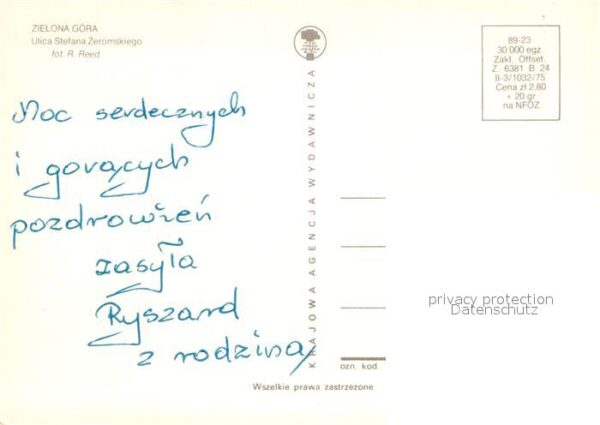 ZIELONA GÓRA
Ulica Stefana Żeromskiego
fot. R. Reed
89-23
30 000 egz
Zakł. Offset.
Z. 6381 B 24
II-3/1032/75
Cena zł 2,80
+ 20 gr
na NFOZ
Moc serdecznych
i gorących
pozdrowień
zasyła
Ryszard
z rodziną
KRAJOWA AGENCJA WYDAWNICZA
privacy protection
Datenschutz
ozn. kod.
Wszelkie prawa zastrzeżone.